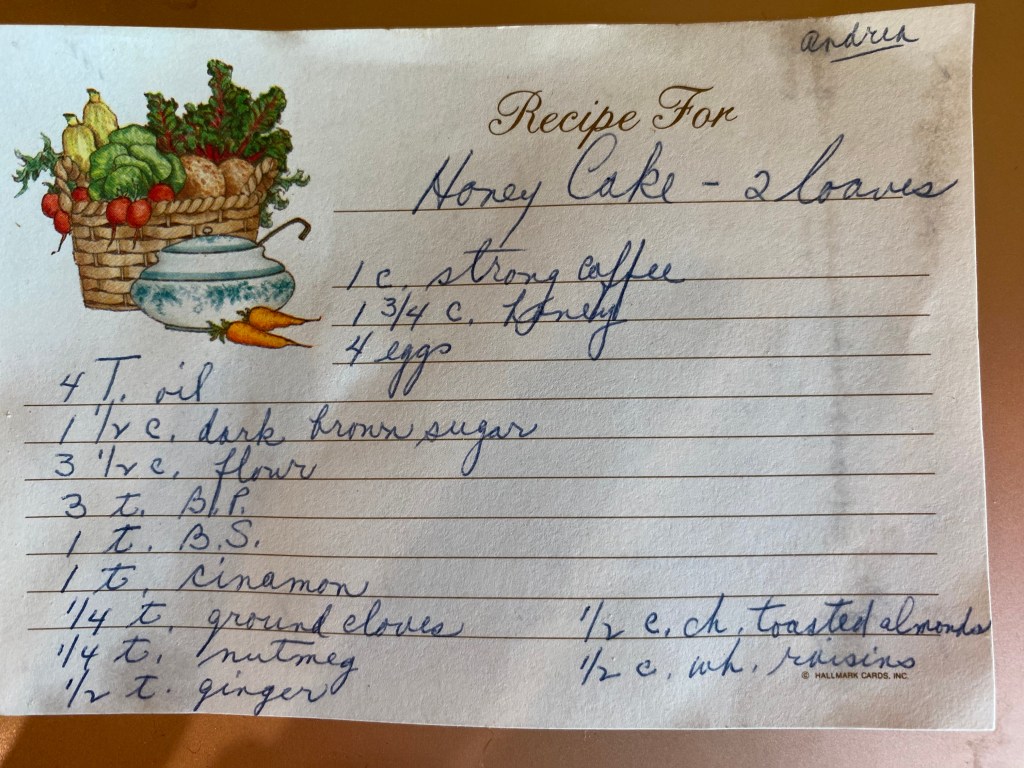 Andrea
Recipe For
Honey Cake - 2 loaves
1 c. strong coffee
1 3/4 c. honey
4 eggs
4 T. oil
1 1/2 c. dark brown sugar
3 1/2 c. flour
3 t. B.P.
1 t. B.S.
1 t. cinamon
1/4 t. ground cloves
1/4 t. nutmeg
1/2 t. ginger
1/2 c. ch. toasted almonds
1/2 c. wh. raisins
© HALLMARK CARDS, INC.